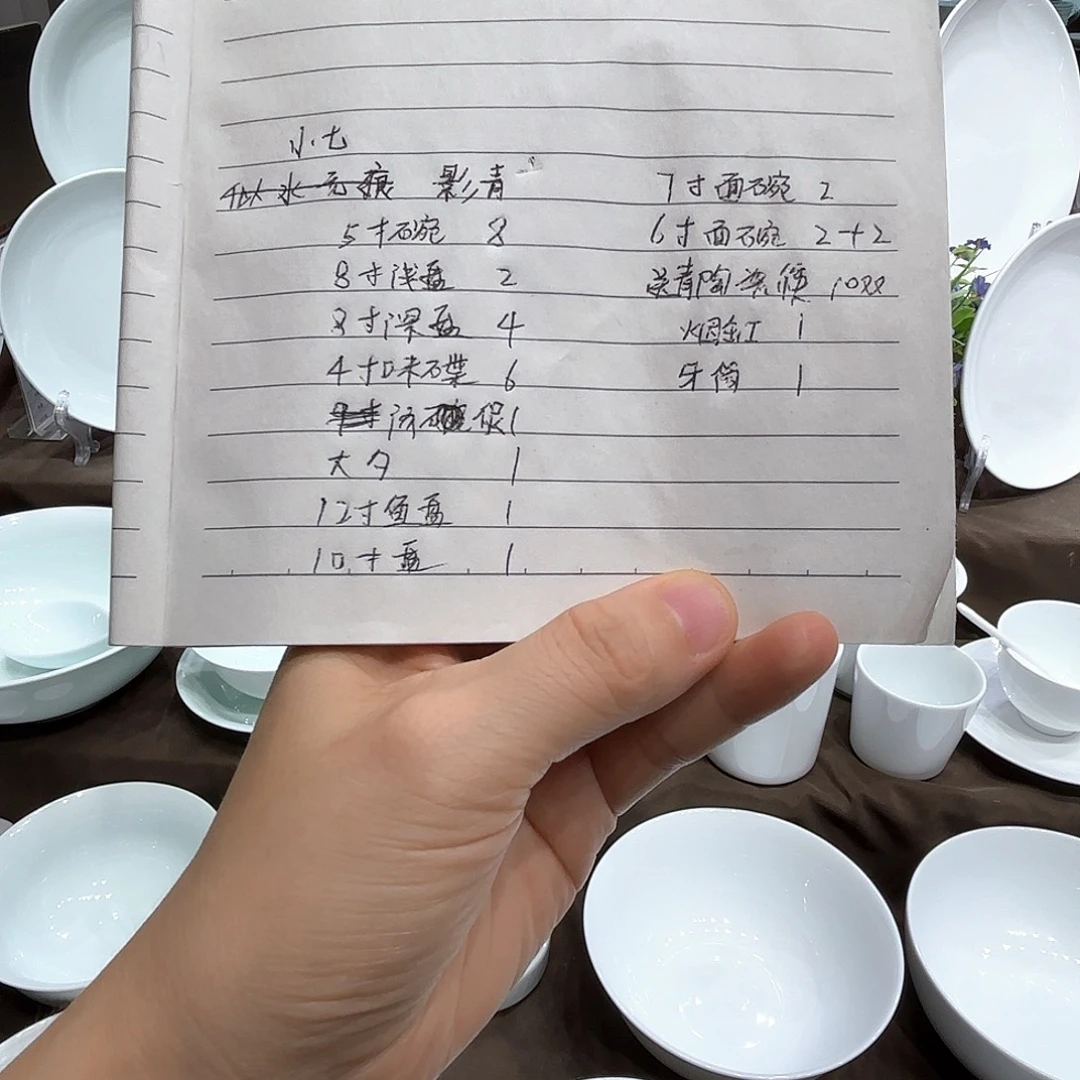 小七
似水无痕 影青
5寸碗 8
8寸浅盘 2
8寸深盘 4
4寸口味碟 6
1
大勺 1
12寸鱼盘 1
10寸盘 1
7寸面碗 2
6寸面碗 2+2
青陶瓷
烟缸 1
牙筒 1